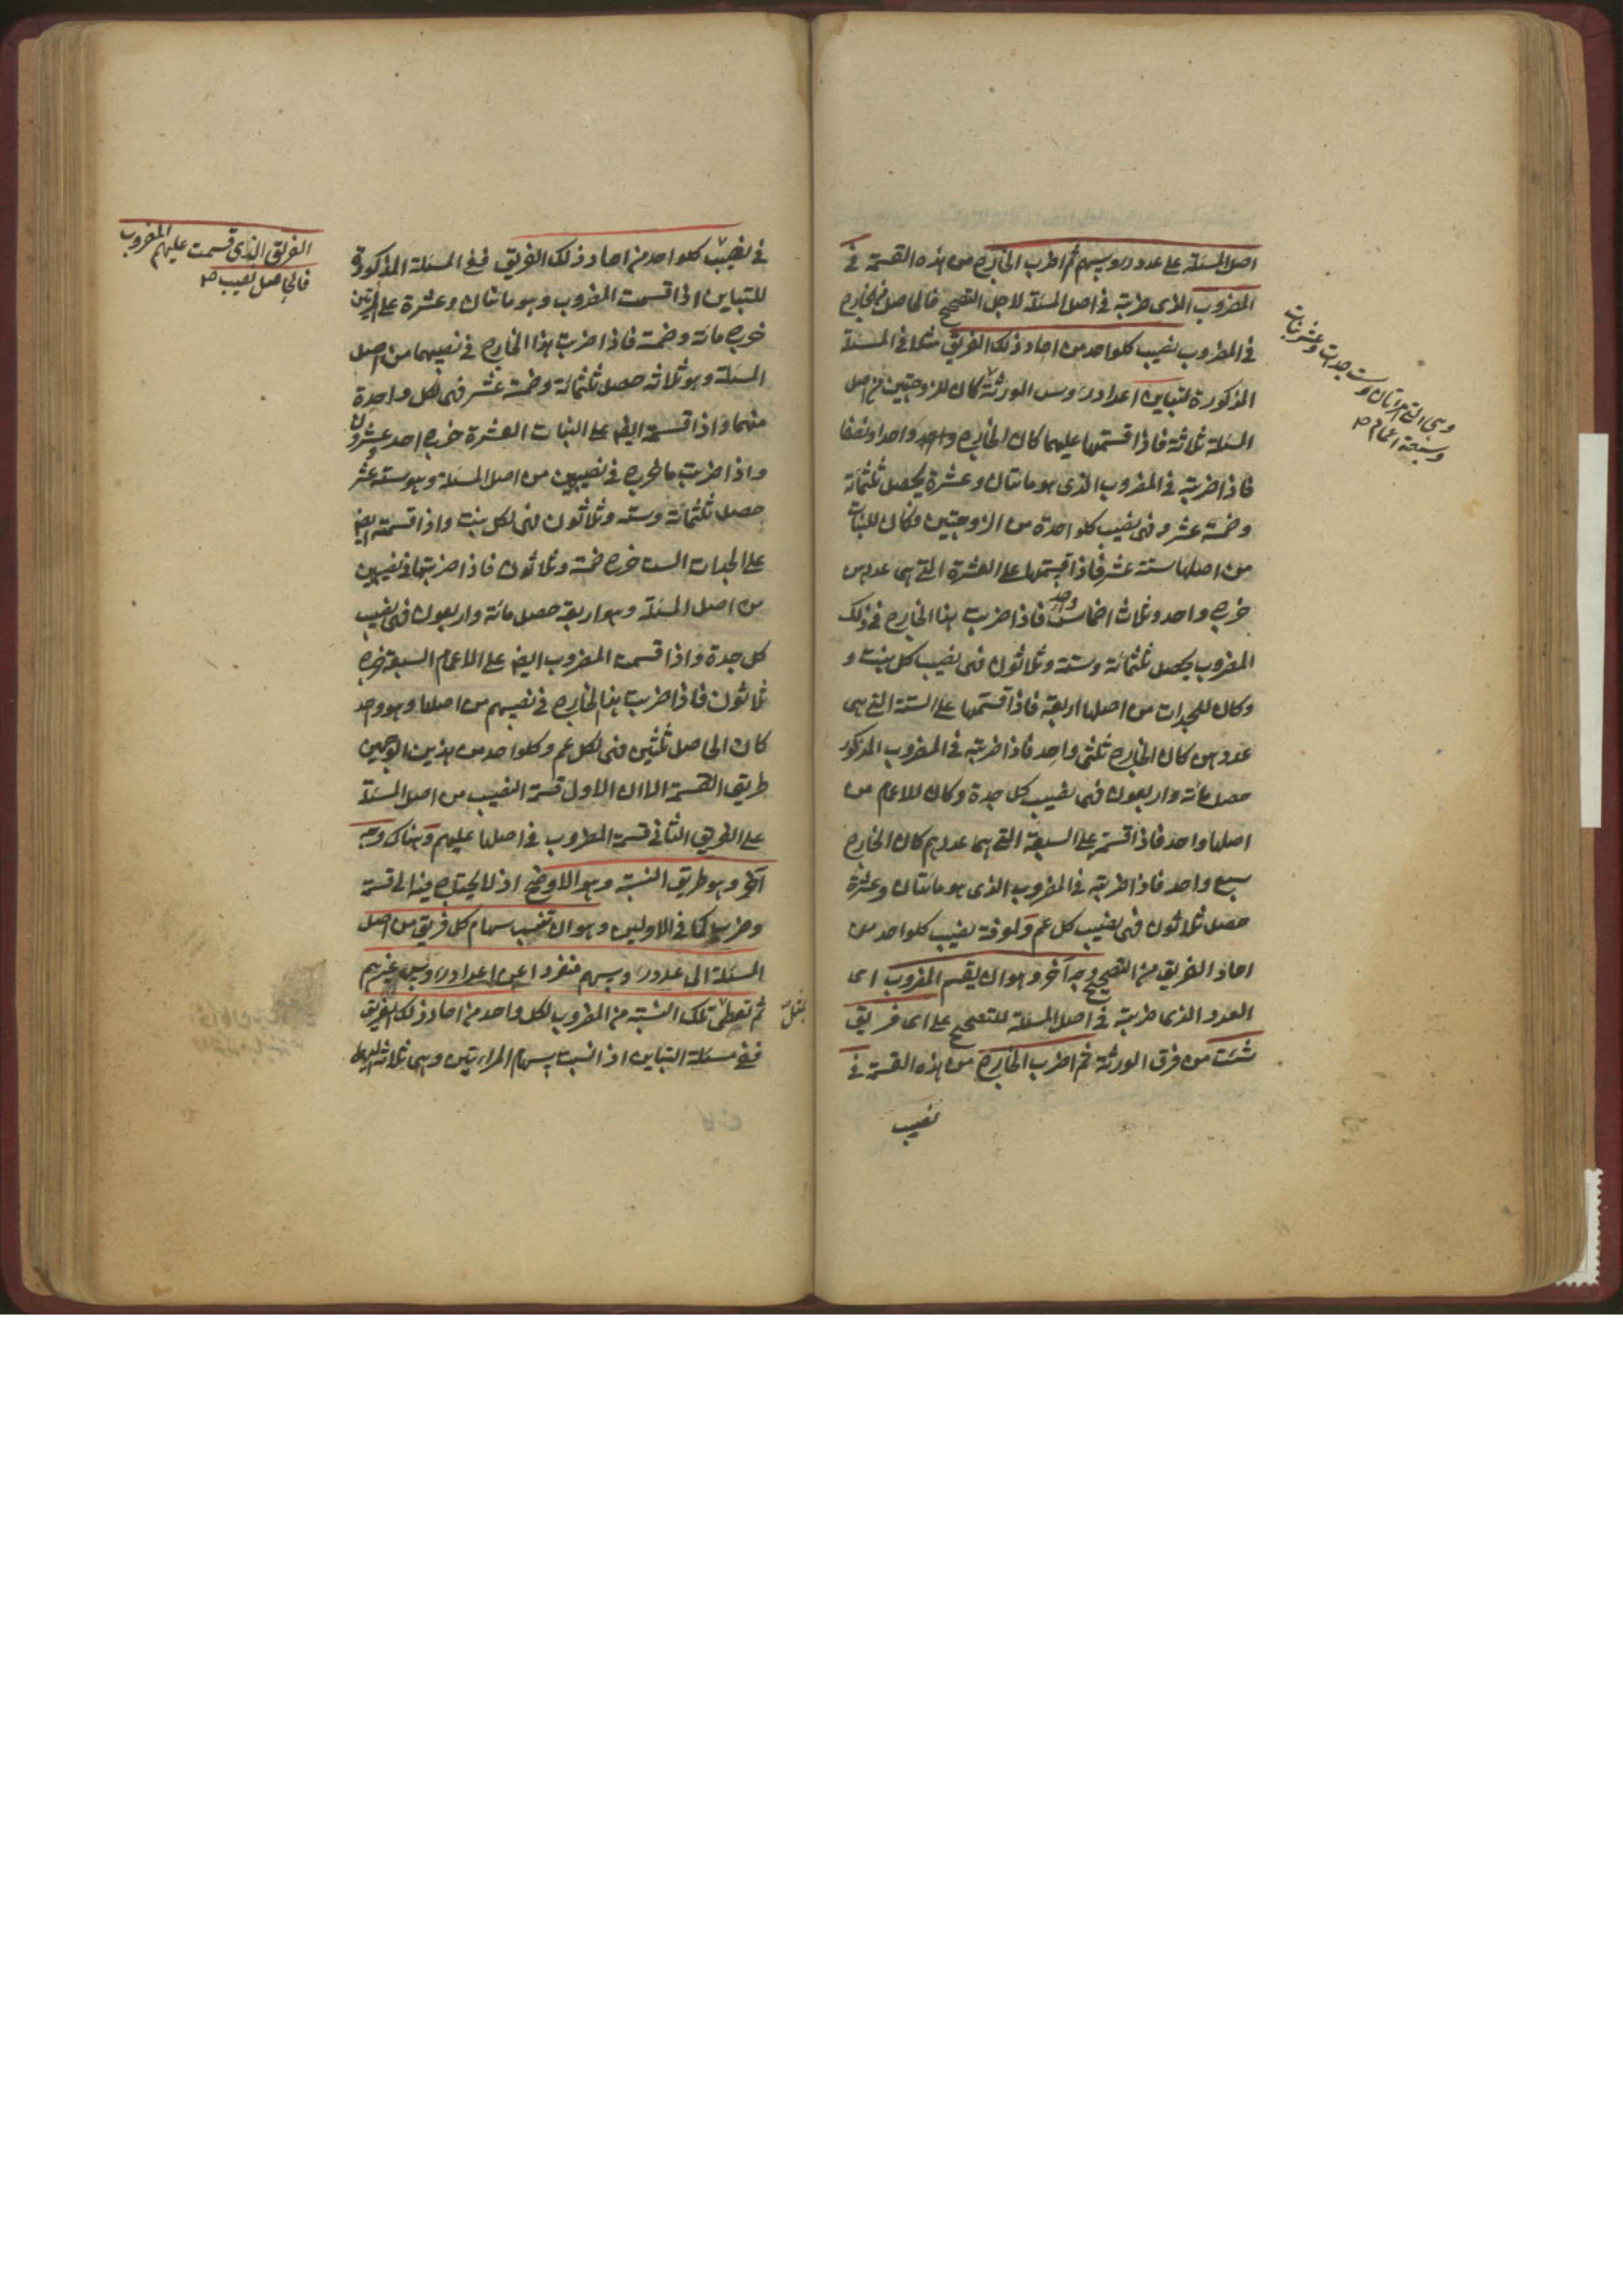 اصل المسئلة على عدد رؤسهم ثم اضرب الخارج من هذه القسمة في
المضروب الذى ضربته في اصل المسئلة لاجل التصحيح فالحاصل من الخارج
في المضروب نصيب كلواحد من احاد ذلك الفريق مثلا في المسئلة
المذكورة لتباين اعداد رؤس الورثة كان للزوجتين من اصل
المسئلة ثلاثة فاذا قسمتها عليهما كان الخارج واحدا ونصفا
فاذا ضربته في المضروب الذى هو مائتان وعشرة يحصل ثلثمائة
وخمسة عشر فهى نصيب كلواحدة من الزوجتين وكان للبنات
من اصلها ستة عشر فاذا قسمتها على العشرة التى هى عددهن
خرج واحد وثلاث اخماس واحد فاذا ضربت هذا الخارج في ذلك
المضروب يحصل ثلثمائة وستة وثلاثون فهى نصيب كل بنت و
وكان للجدات من اصلها اربعة فاذا قسمتها على الستة التى هى
عددهن كان الخارج ثلثى واحد فاذا ضربته في المضروب المذكور
حصل مائة واربعون فهى نصيب كل جدة وكان للاعمام من
اصلها واحد فاذا قسمته على السبعة التى هى عددهم كان الخارج
سبع واحد فاذا ضربته في المضروب الذى هو مائتان وعشرة
حصل ثلاثون فهى نصيب كل عم ولمعرفة نصيب كلواحد من
احاد الفريق من التصحيح وجه آخر وهو ان يقسم المضروب اى
العدد الذى ضربته في اصل المسئلة للتصحيح على اى فريق
شئت من فرق الورثة ثم اضرب الخارج من هذه القسمة في
نصيب
وهى التى امراتان وست جدات وعشر بنات
وسبعة اعمام صح
في نصيب كلواحد من احاد ذلك الفريق ففى المسئلة المذكورة
للتباين اذا قسمت المضروب وهو مائتان وعشرة على المرأتين
خرج مائة وخمسة فاذا ضربت هذا الخارج في نصيبهما من اصل
المسئلة وهو ثلاثة حصل ثلثمائة وخمسة عشر فهى لكل واحدة
منهما واذا قسمته ايضا على البنات العشرة خرج احد وعشرون
واذا ضربت ما خرج في نصيبهن من اصل المسئلة وهو ستة عشر
حصل ثلثمائة وستة وثلاثون فهى لكل بنت واذا قسمته ايضا
على الجدات الست خرج خمسة وثلاثون فاذا ضربتها في نصيبهن
من اصل المسئلة وهو اربعة حصل مائة واربعون فهى نصيب
كل جدة واذا قسمت المضروب ايضا على الاعمام السبعة خرج
ثلاثون فاذا ضربت هذا الخارج في نصيبهم من اصلها وهو واحد
كان الحاصل ثلثين فهى لكل عم وكلواحد من هذين الوجهين
طريق القسمة الا ان الاول قسمة النصيب من اصل المسئلة
على الفريق الثانى قسمة المضروب في اصلها عليهم وهناك وجه
آخر وهو طريق النسبة وهو الاوضح اذ لا يحتاج فيه الى قسمة
وضرب كما في الاولين وهو ان تنسب سهام كل فريق من اصل
المسئلة الى عدد رؤسهم منفردا عن اعداد رؤس غيرهم
ثم تعطى تلك النسبة من المضروب لكل واحد من احاد ذلك الفريق
ففى مسئلة التباين اذا نسبت سهام المرأتين وهى ثلاثة
الفريق الذى قسمت عليهم المضروب
فالحاصل نصيب صح